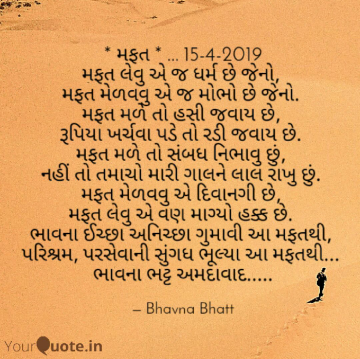 * મફત * ... 15-4-2019
મફત લેવુ એ જ ધર્મ છે જેનો,
મફત મેળવવુ એ જ મોભો છે જેનો.
મફત મળે તો હસી જવાય છે,
રૂપિયા ખર્ચવા પડે તો રડી જવાય છે.
મફત મળે તો સંબધ નિભાવુ છું,
નહીં તો તમાચો મારી ગાલને લાલ રાખુ છું.
મફત મેળવવુ એ દિવાનગી છે,
મફત લેવુ એ વણ માગ્યો હક્ક છે.
ભાવના ઈચ્છા અનિચ્છા ગુમાવી આ મફતથી,
પરિશ્રમ, પરસેવાની સુંગધ ભૂલ્યા આ મફતથી...
ભાવના ભટ્ટ અમદાવાદ.....
– Bhavna Bhatt
YourQuote.in